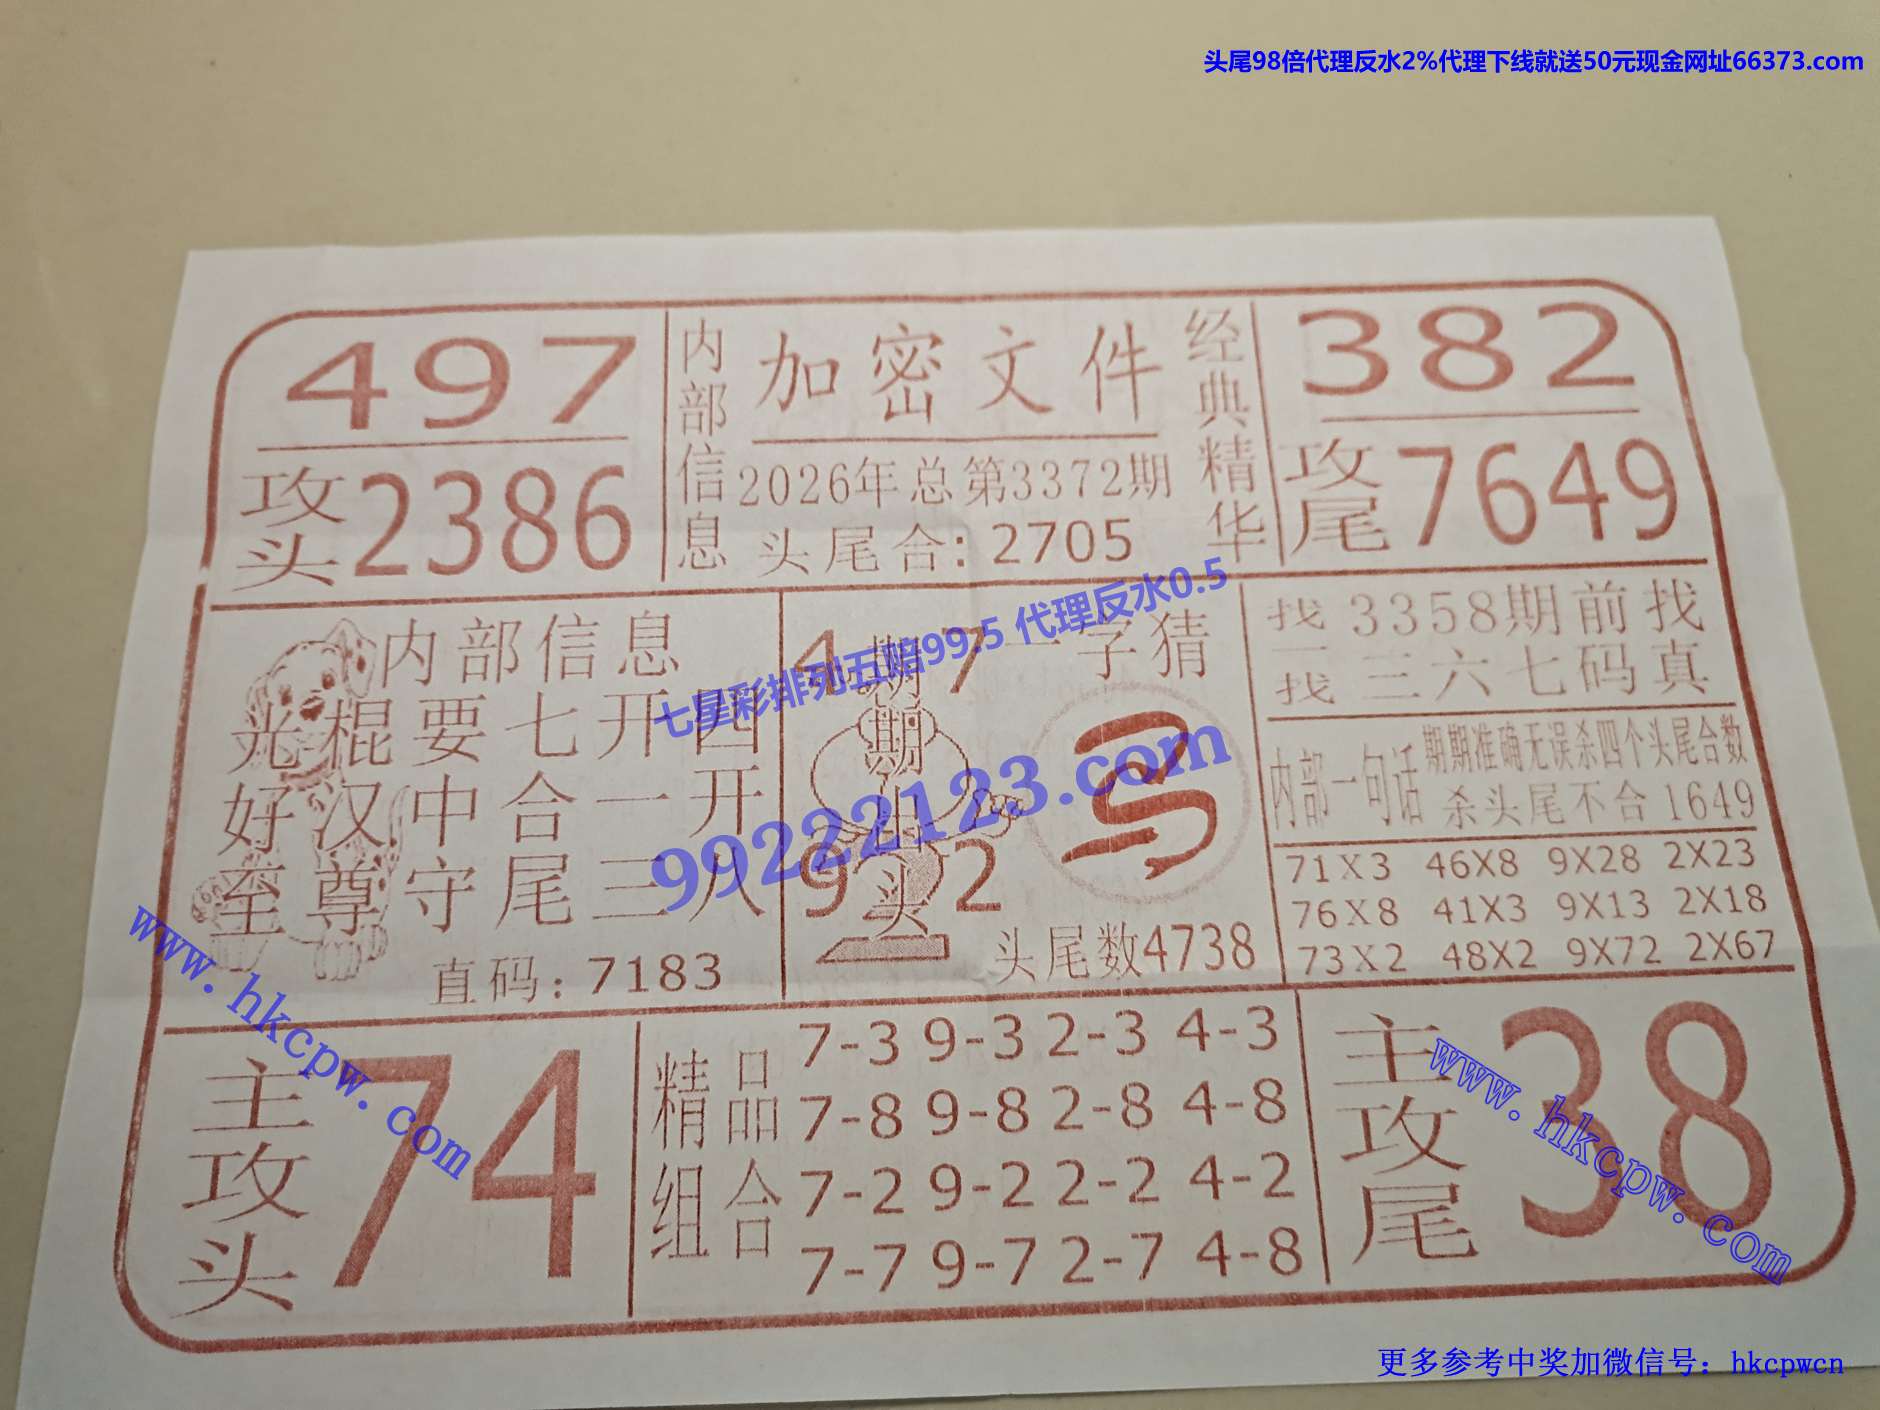 头尾98倍代理反水2%代理下线就送50元现金网址66373.com
497
攻头2386
内部信息
加密文件
2026年总第3372期
头尾合:2705
经典精华
382
攻尾7649
内部信息
光棍要七开四
好汉中合一开
至尊守尾三八
直码:7183
4 7
期期出头
9 2
一字猜
头尾数4738
找一找
3358期前找
三六七码真
内部一句话
期期准确无误杀四个头尾合数
杀头尾不合1649
71X3 46X8 9X28 2X23
76X8 41X3 9X13 2X18
73X2 48X2 9X72 2X67
七星彩排列五赔99.5 代理反水0.5
99222123.com
主攻头
74
精品组合
7-3 9-3 2-3 4-3
7-8 9-8 2-8 4-8
7-2 9-2 2-2 4-2
7-7 9-7 2-7 4-8
主攻尾
38
www.hkcpw.com
www.hkcpw.com
更多参考中奖加微信号：hkcpwcn